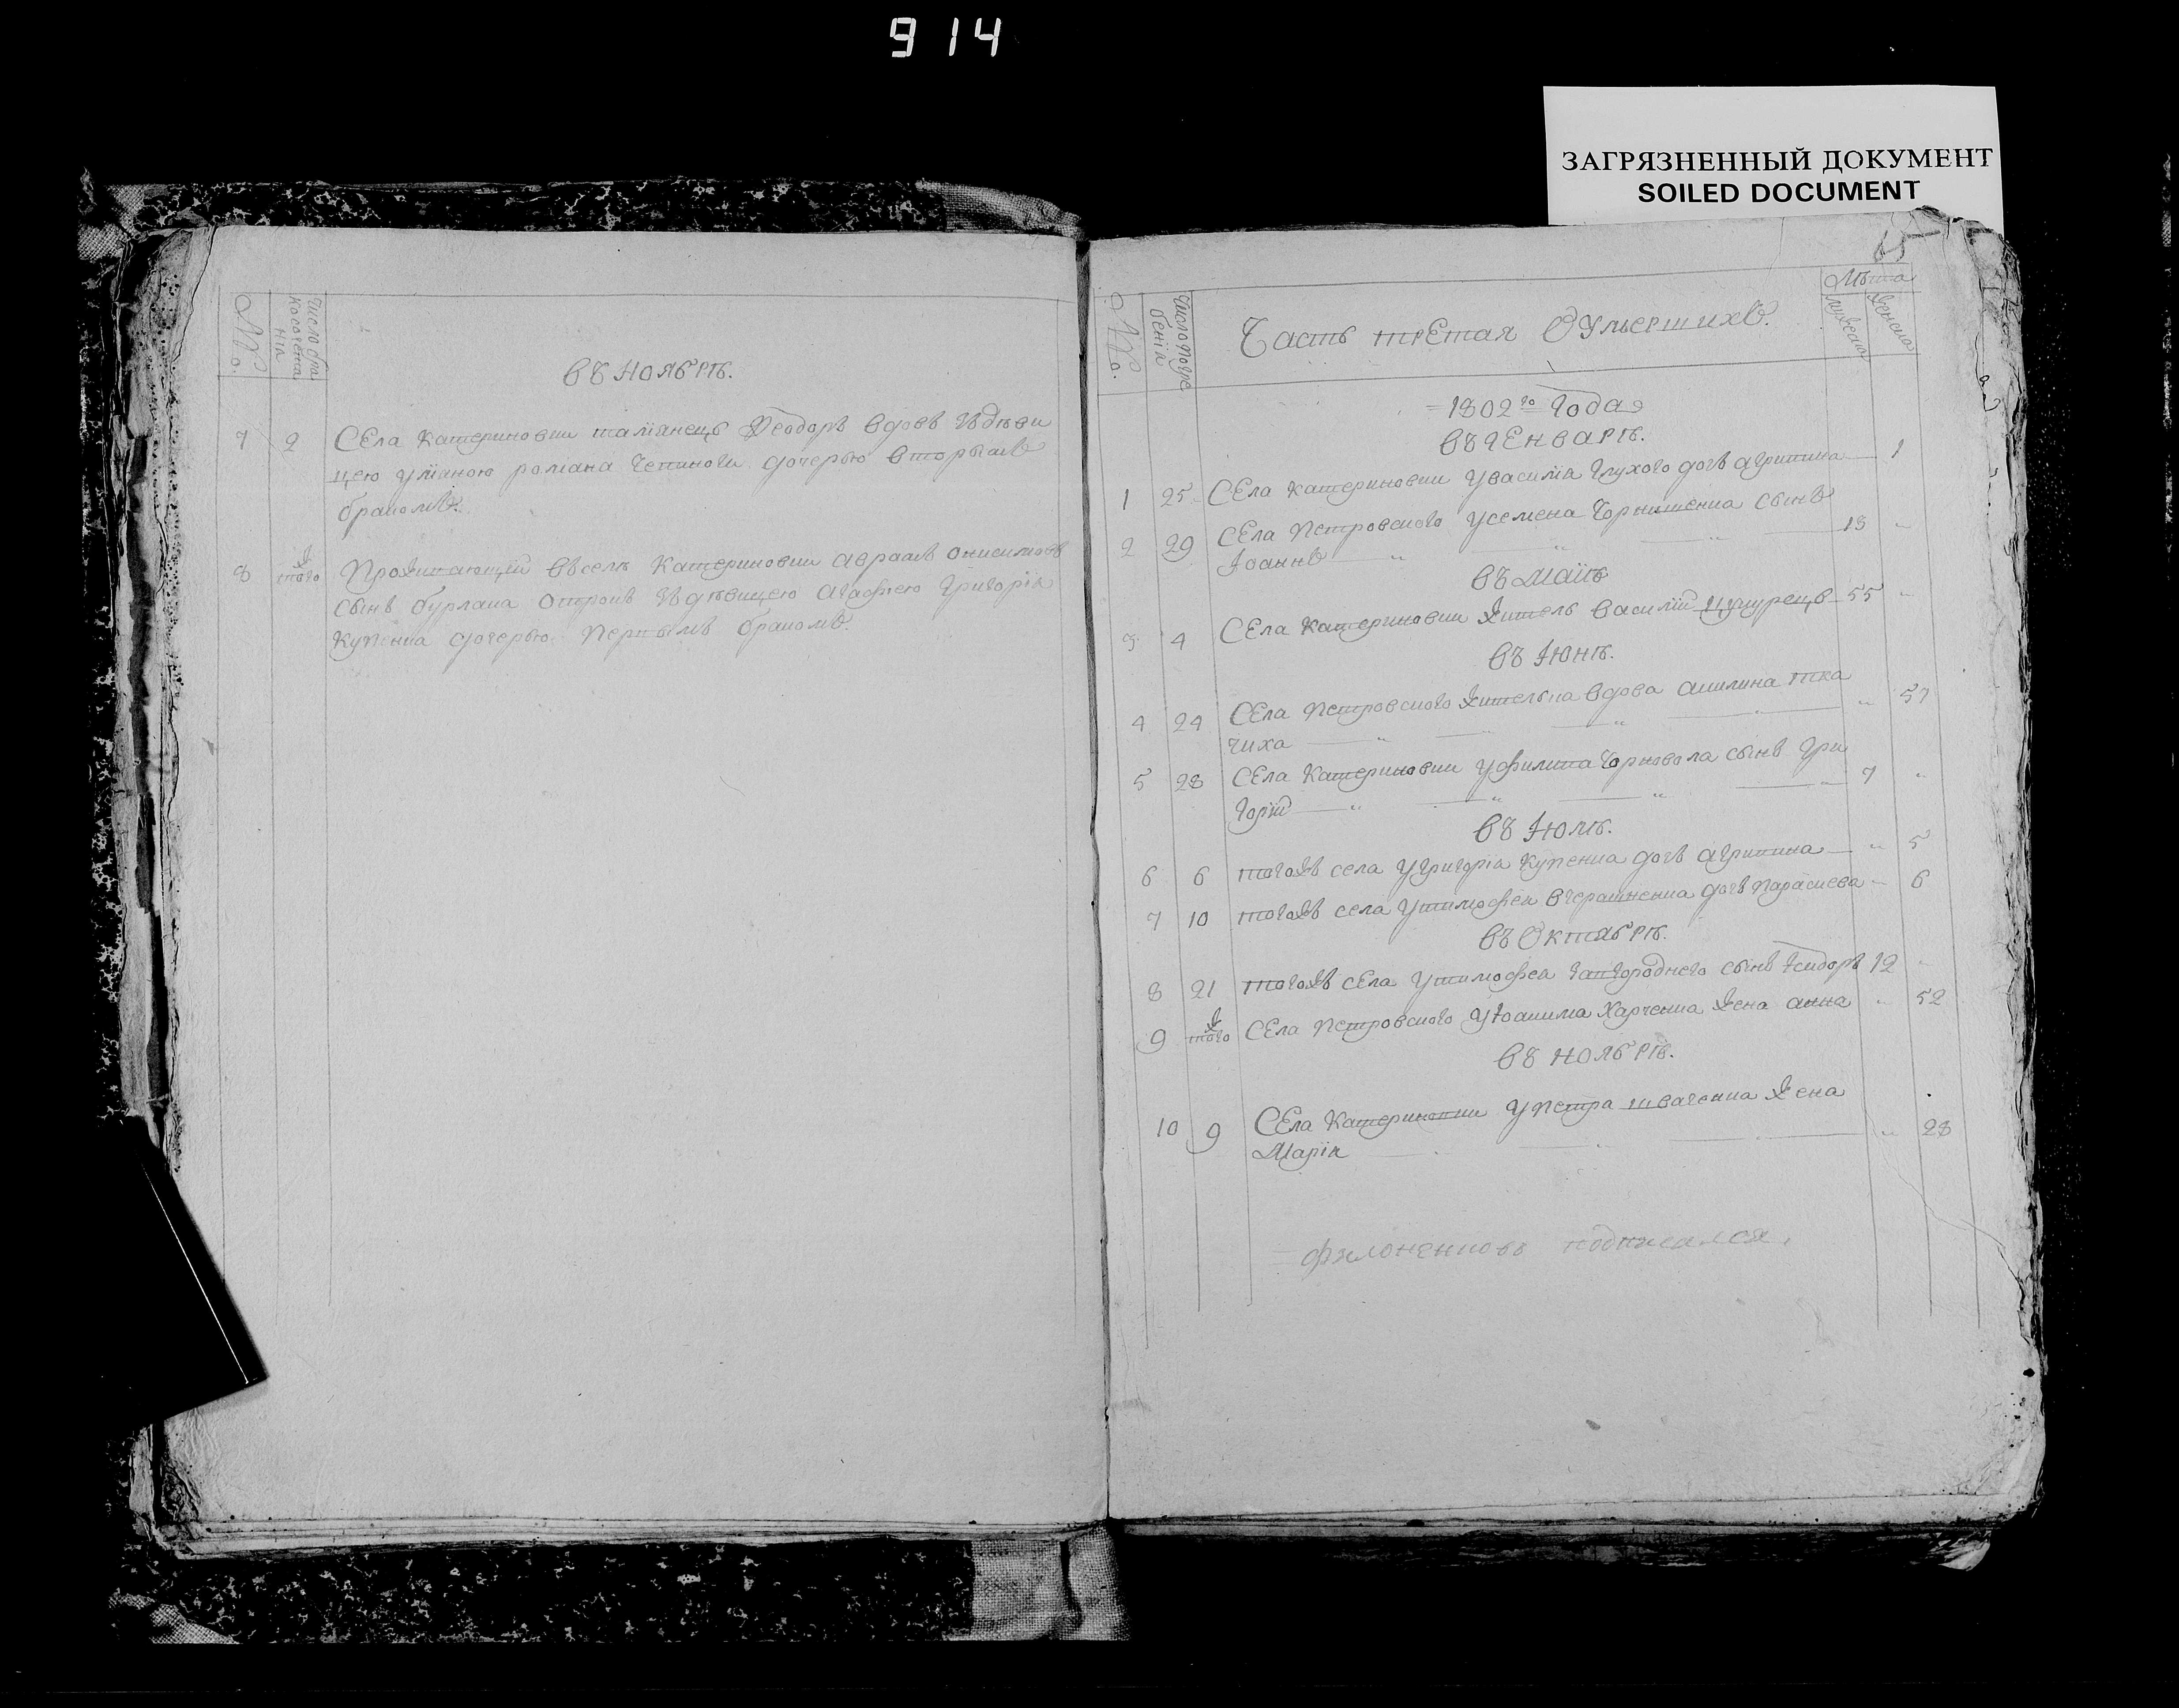 914
ЗАГРЯЗНЕННЫЙ ДОКУМЕНТ
SOILED DOCUMENT
№о.
Число бра
косочета
нія
въ Ноябрѣ.
7 2 Села Катериновки таміянецъ Ѳеодоръ вдовъ зъдѣви
цею уліаною романа чепиноги дочерью вторымъ
бракомъ.
8 того ж Проживающій въ селѣ Катериновки авраамъ онисимовъ
сынъ бурлака отрокъ зъ дѣвицею агафією Григорія
Купенка дочерью первымъ бракомъ.
65
№о.
Число погре
бенія
Часть третая О умершихъ.
Лѣта
мужеска
женска
1802го Года
въ Генварѣ.
1 25 Села Катериновки у василія Глухого дочъ агрипина 1
2 29 Села Петровского у семена Чорнишенка сынъ
Іоаннъ 13
въ Маіѣ
3 4 Села Катериновки житель василій 55
въ Іюнѣ.
4 24 Села Петровского жителька вдова акилина тка
чиха 57
5 28 Села Катериновки у филипа Чорновола сынъ Гри
горій 7
въ Іюлѣ.
6 6 тогожъ села у Григорія Купенка дочъ агрипина 5
7 10 тогожъ села у тимофея вчерашненка дочъ параскева 6
въ Октябрѣ.
8 21 тогожъ села у тимофея загороднего сынъ Ісидоръ 12
9 того ж Села Петровского у Іоакима Харченка жена анна 52
въ Ноябрѣ.
10 9 Села Катериновки у Петра шваченка жена
Марія 28
Филоненковъ подписался.